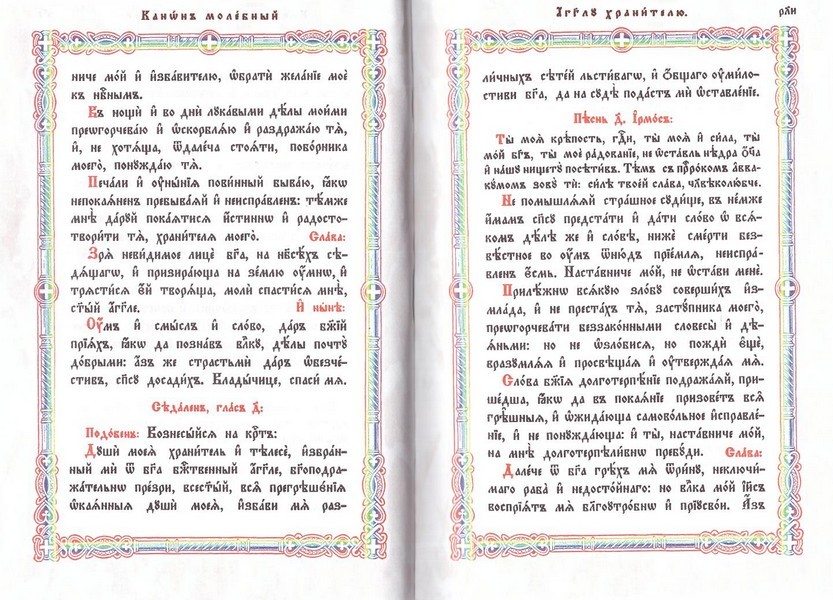 Канѡ́нъ моле́бный
ниче мо́й и҆ и҆зба́вителю, ѡ҆братѝ жела́нїе моѐ
къ нб҃нымъ.
Въ нощѝ и҆ во днѝ лꙋка́выми дѣ́лы мои́ми
преѡгорчева́ю и҆ ѡ҆скорблѧ́ю и҆ раздража́ю тѧ̀,
и҆, не хотѧ́ща, ѿдале́ча стоѧ́ти, побо́рника
моего̀, понꙋжда́ю тѧ̀.
Печа́ли и҆ ᲂу҆ны́нїѧ пови́нный быва́ю, ꙗ҆́кѡ
непокаѧ́ненъ пребыва́ѧй и҆ неиспра́вленъ: тѣ́мже
мнѣ̀ да́рꙋй пока́ѧтисѧ и҆́стиннѡ и҆ ра́досто-
твори́ти тѧ̀, храни́телѧ моего̀. Сла́ва:
Зрѧ̀ неви́димое лицѐ бг҃а, на нб҃сѣ́хъ сѣ-
дѧ́щагѡ, и҆ призира́юща на зе́млю ᲂу҆́мнѡ, и҆
трѧсти́сѧ є҆́й творѧ́ща, молѝ спасти́сѧ мнѣ̀,
ст҃ы́й а҆́гг҃ле. И҆ ны́нѣ:
Оу҆́мъ и҆ смы́слъ и҆ сло́во, да́ръ бж҃їй
прїѧ́хъ, ꙗ҆́кѡ да позна́въ вл҃кꙋ, дѣ́лы почтꙋ̀
до́брыми: а҆́зъ же страстьмѝ да́ръ ѡ҆безче́-
стивъ, сп҃сꙋ досади́хъ. Влады́чице, спасѝ мѧ.
Сѣда́ленъ, гла́съ д҃:
Подо́бенъ: Вознесы́йсѧ на кр҃тъ:
Дꙋшѝ моеѧ̀ храни́тель и҆ тѣлесѐ, и҆збра́н-
ный мѝ ѿ бг҃а бж҃твенный а҆́гг҃ле, бг҃оподра-
жа́тельнѡ пре́зри, всест҃ы́й, всѧ̑ прегрѣшє́нїѧ
ѡ҆каѧ́нныѧ дꙋшѝ моеѧ̀, и҆зба́ви мѧ̀ раз-
А҆́гг҃лꙋ храни́телю.
рл҃и
ли́чныхъ сѣ́тей льсти́вагѡ, и҆ ѻ҆́бщаго ᲂу҆ми́ло-
стиви бг҃а, да на сꙋдѣ̀ пода́стъ мѝ ѡ҆ставле́нїе.
Пѣ́снь д҃. І҆рмо́съ:
Ты̀ моѧ̀ крѣ́пость, гд҇и, ты̀ моѧ̀ и҆ си́ла, ты̀
мо́й бг҃ъ, ты̀ моѐ ра́дованїе, не ѡ҆ста́вль нѣ́дра ѻ҆́ч҃а
и҆ на́шꙋ нищетꙋ̀ посѣти́въ. Тѣ́мъ съ прⷪ҇ро́комъ а҆вва-
кꙋ́момъ зовꙋ́ ти: си́лѣ твое́й сла́ва, чл҃вѣколю́бче.
Не помышлѧ́ѧй стра́шное сꙋди́ще, въ не́мже
и҆́мамъ сп҃сꙋ предста́ти и҆ да́ти сло́во ѡ҆ всѧ́-
комъ дѣ́лѣ же и҆ сло́вѣ, нижѐ сме́рти без-
вѣ́стное во ᲂу҆́мъ ѿню́дъ прїе́млѧ, неиспра́-
вленъ є҆́смь. Наста́вниче мо́й, не ѡ҆ста́ви менѐ.
Прилѣ́жнѡ всѧ́кꙋю зло́бꙋ соверши́хъ и҆з-
мла́да, и҆ не преста́хъ тѧ̀, застꙋ́пника моего̀,
преѡгорчева́ти беззако́нными словесы̀ и҆ дѣ-
ѧ́ньми: но не ѡ҆зло́бисѧ, но пождѝ є҆щѐ,
вразꙋмлѧ́ѧ и҆ просвѣща́ѧ и҆ ᲂу҆твержда́ѧ мѧ̀.
Сло́ва бж҃їѧ долготерпѣ́нїе подража́ѧй, при-
ше́дша, ꙗ҆́кѡ да въ покаѧ́нїе призове́тъ всѧ̑
грѣ́шныѧ, и҆ ѡ҆жида́юща самово́льное и҆справле́-
нїе, и҆ не понꙋжда́юща: и҆ ты̀, наста́вниче мо́й,
на мнѣ̀ долготерпѣли́внѡ пребꙋ́ди. Сла́ва:
Дале́че ѿ бг҃а грѣ́хъ мѧ̀ ѿри́нꙋ, неключи́-
маго раба̀ и҆ недосто́йнаго: но вл҃ка мо́й і҆и҃съ
воспрїѧ́тъ мѧ̀ бл҃гоꙋтро́бнѡ и҆ прїꙋсво́и. А҆́зъ